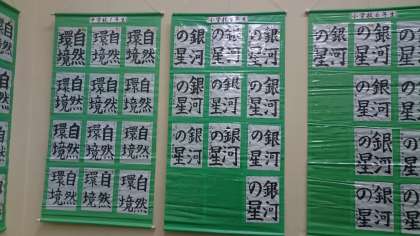 中学校
年生
自然
環境
自然
環境
自然
環境
自然
環境
自然
環境
自然
環境
自然
環境
自然
環境
自然
環境
自然
環境
自然
環境
自然
環境
小学校六年生
銀河
の星
銀河
の星
銀河
の星
銀河
の星
銀河
の星
銀河
の星
銀河
の星
銀河
の星
銀河
の星
銀河
の星
小学校六年生
銀河
の星
銀河
の星
銀河
の星
銀河
の星
銀河
の星